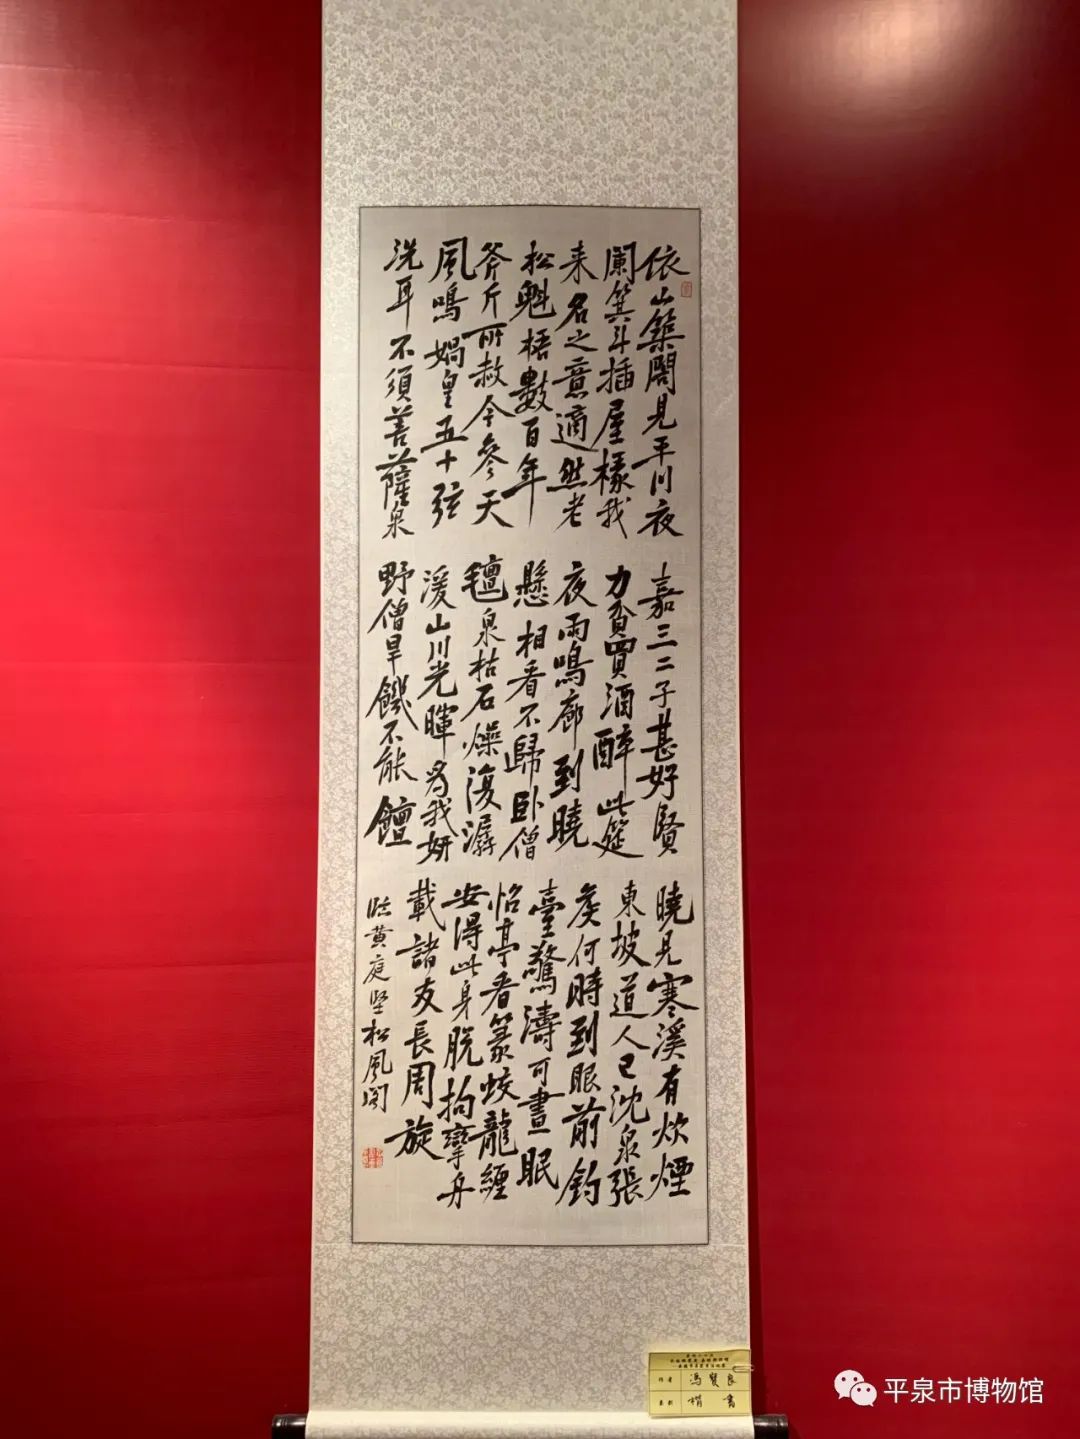 依山築閣見平川夜
闌箕斗插屋椽我
来名之意適然老
松魁梧數百年
斧斤所赦今參天
風鳴媧皇五十弦
洗耳不須菩薩泉
嘉三二子甚好賢
力貧買酒醉此筵
夜雨鳴廊到曉
懸相看不歸卧僧
氊泉枯石燥復潺
湲山川光暉為我妍
野僧旱饑不能饘
曉見寒溪有炊煙
東坡道人已沈泉張
矦何時到眼前釣
臺驚濤可晝眠
怡亭看篆蛟龍纏
安得此身脱拘攣舟
載諸友長周旋
臨黄庭坚松風閣
作者 馮賢良
平泉市博物馆